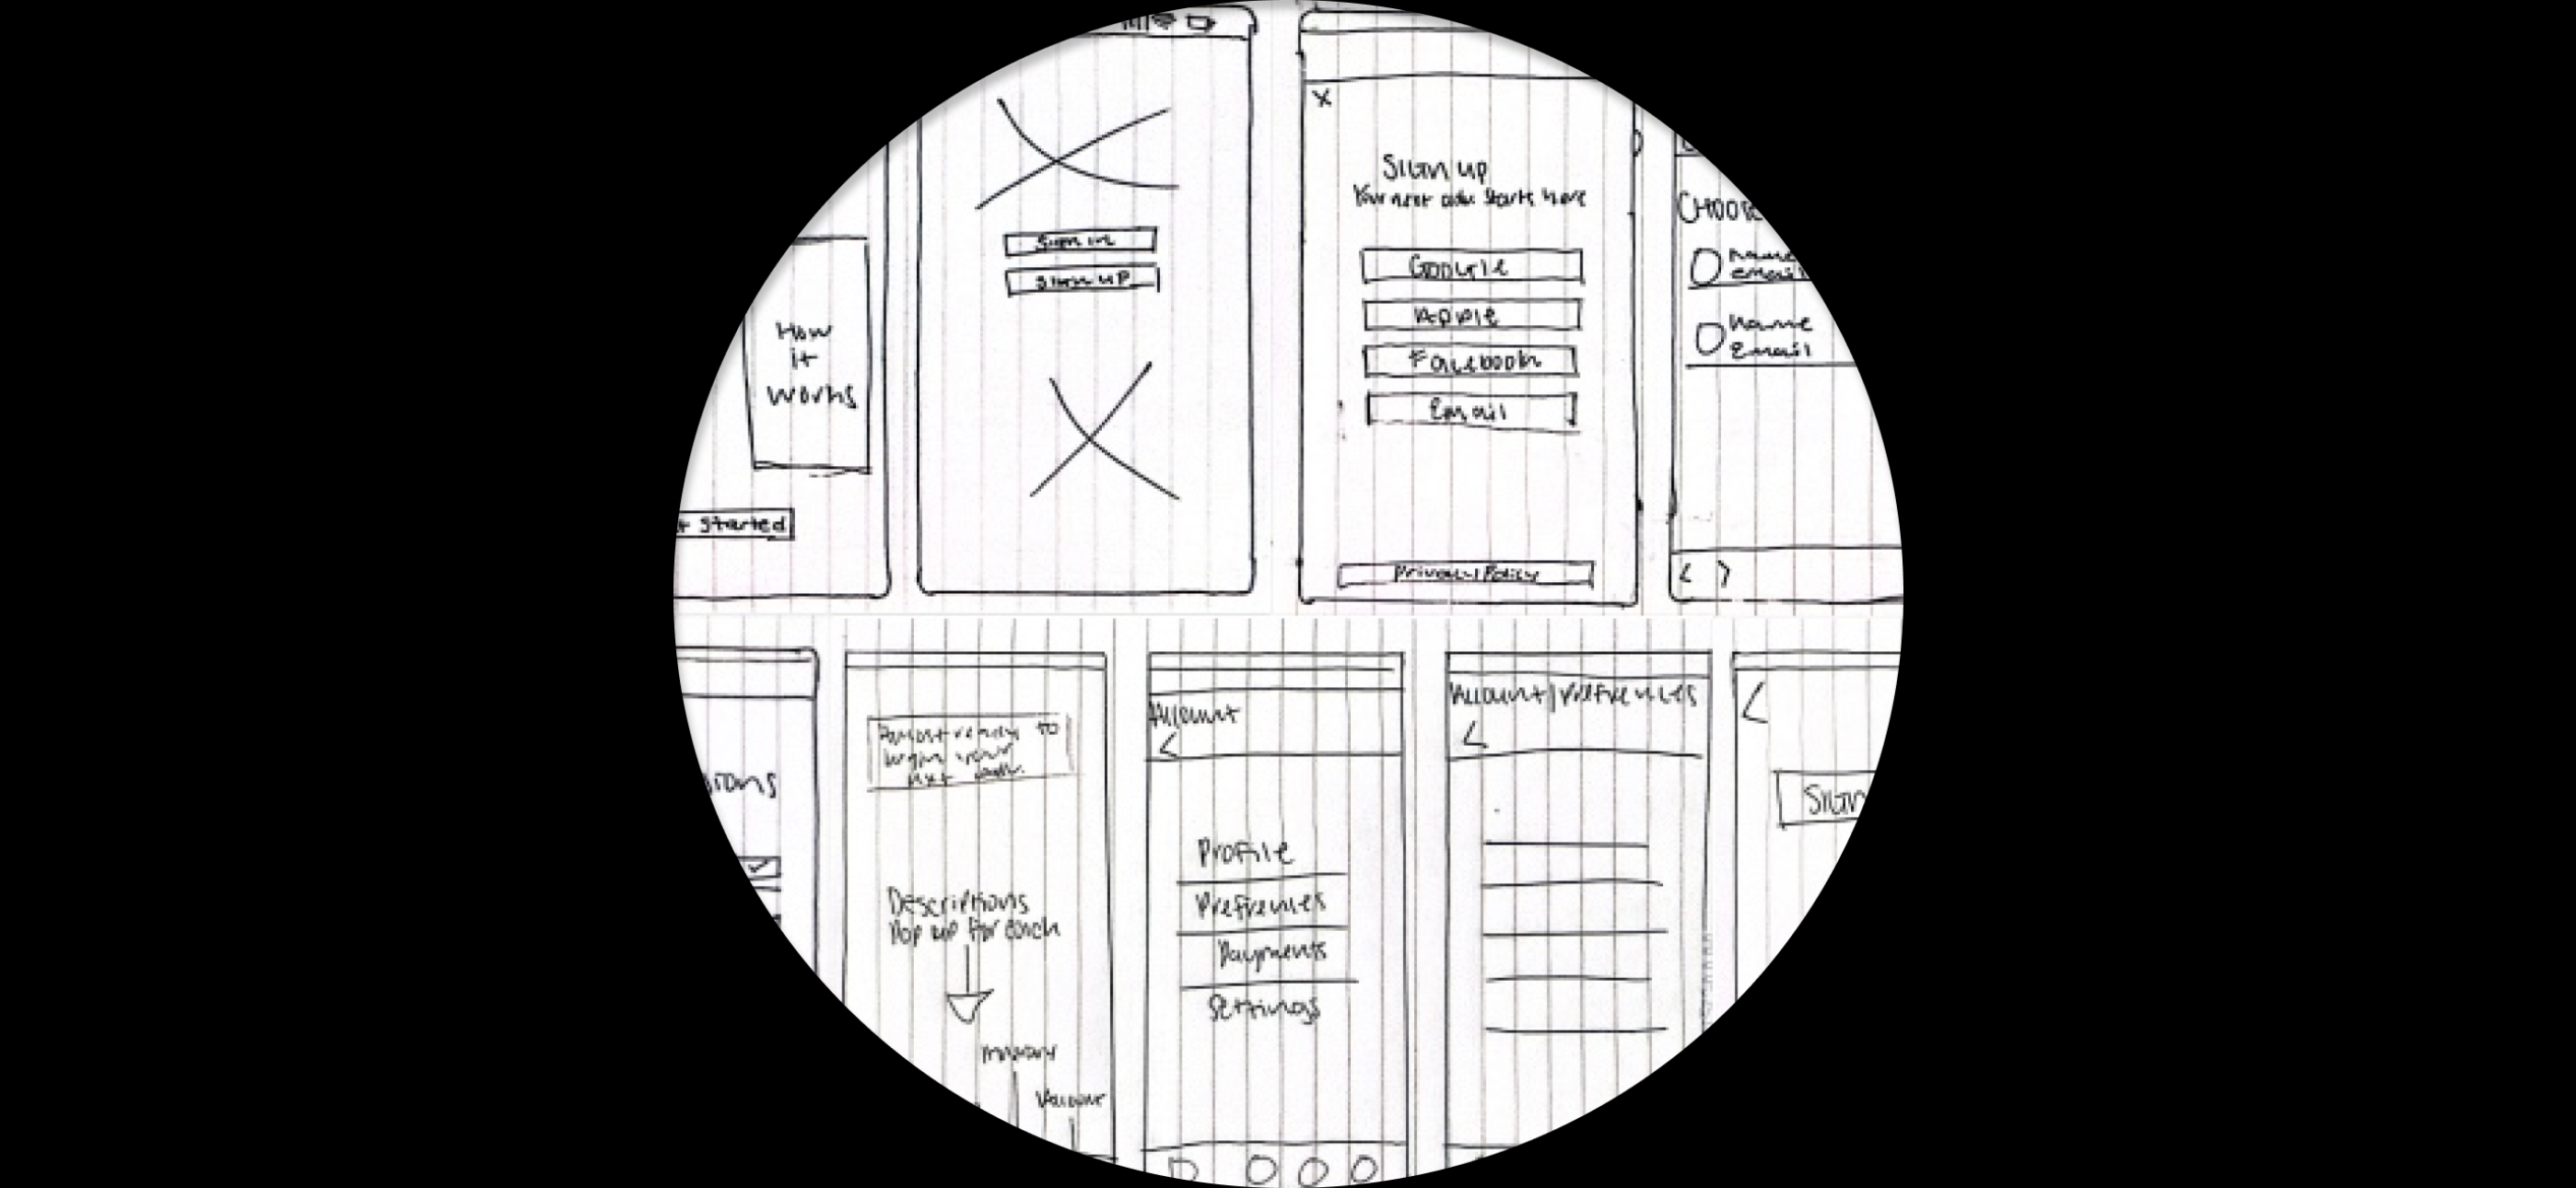 How
it
works
Started
Sign in
Sign up
X
Sign up
Your next starts here
Google
Apple
Facebook
Email
Privacy Policy
name
email
Name
Email
Almost ready to
begin your
next
Descriptions
Pop up for each
Account
Profile
Prefrences
Payments
Settings
Account/Prefrences